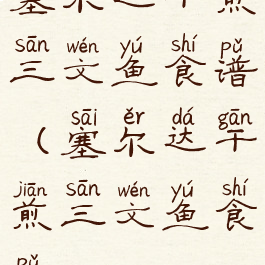 塞尔达干煎
sān wén yú shí pǔ
三文鱼食谱
sāi ěr dá gān
（塞尔达干
jiān sān wén yú shí
煎三文鱼食
pǔ